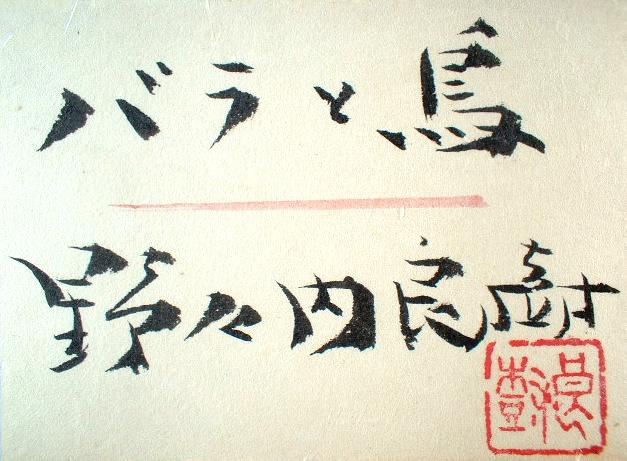 バラと鳥
野々内良樹